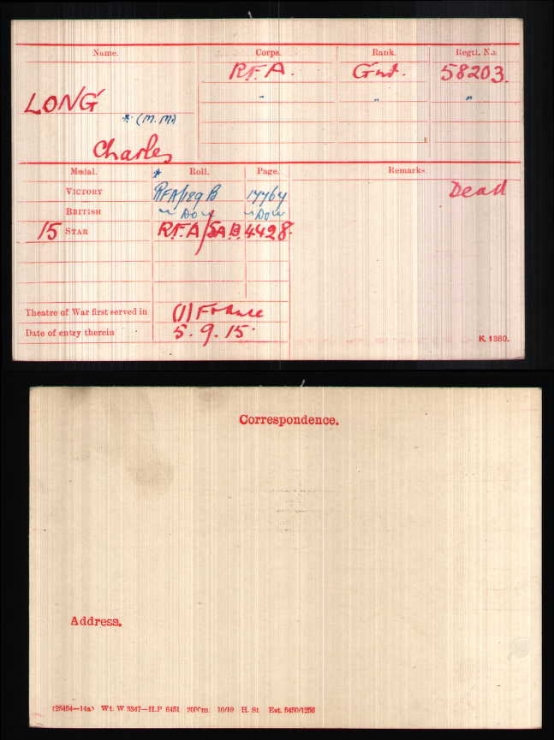 Name. Corps. Rank. Regtl. No.
R.F.A. Gnr. 58203.
LONG " " "
* (M.M)
Charles
Medal. * Roll. Page. Remarks
VICTORY RFA/189B 17764 Dead
BRITISH ~ Do ~ Do
15 STAR R.F.A/5AB 4428.
Theatre of War first served in (1) France
Date of entry therein 5.9.15.
K. 1380.
Correspondence.
Address.
Wt. W 5247—H.P 6451 10/19 H. St.